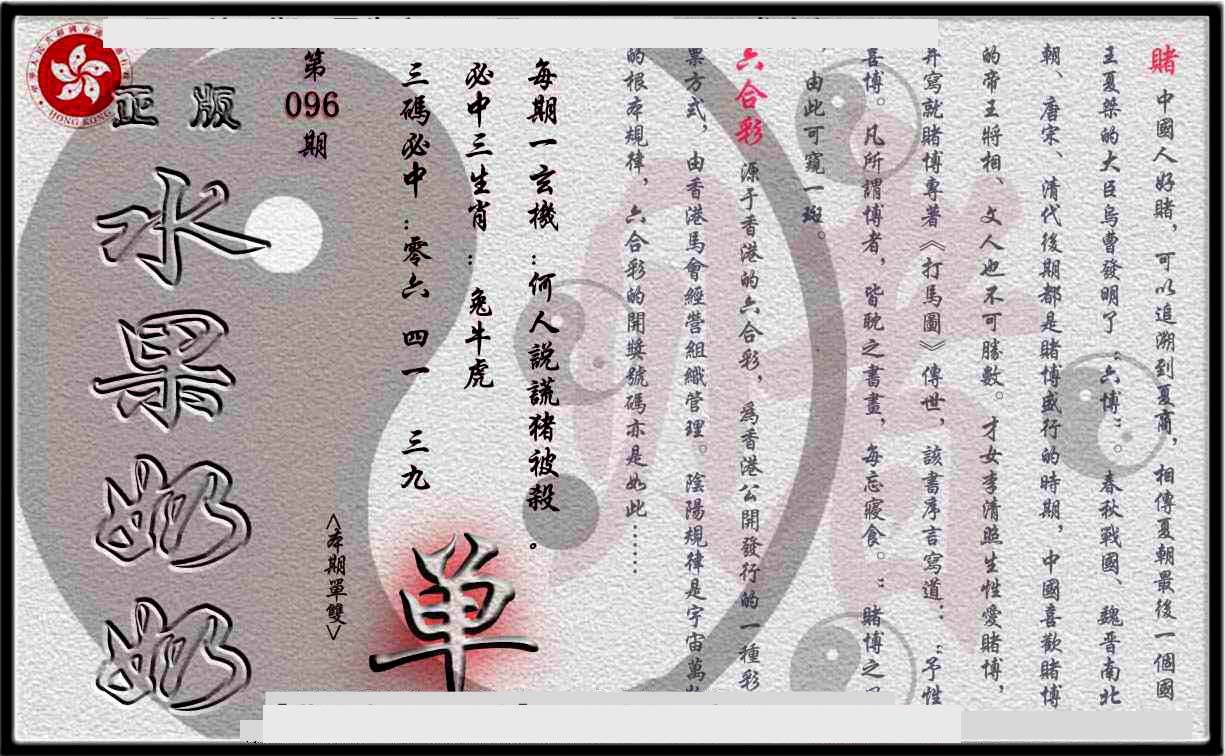 賭 中國人好賭，可以追溯到夏商，相傳夏朝最後一個國
王夏桀的大臣烏曹發明了：六博：。春秋戰國、魏晉南北
朝、唐宋、清代後期都是賭博盛行的時期，中國喜歡賭博
的帝王將相、文人也不可勝數。才女李清照生性愛賭博，
并寫就賭博專著《打馬圖》傳世，該書序言寫道：：予性
喜博。凡所謂博者，皆耽之書畫，每忘寢食。：賭博之
由此可窺一斑。
六合彩 源于香港的六合彩，為香港公開發行的一種彩
票方式，由香港馬會經營組織管理。陰陽規律是宇宙萬
的根本規律，六合彩的開獎號碼亦是如此……
每期一玄機：何人説謊猪被殺。
必中三生肖：兔牛虎
三碼必中：零六 四一 三九
<本期單雙>
单
第
096
期
正版
水果奶奶
HONG KONG